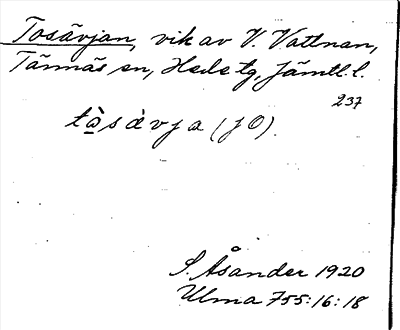 Tosävjan, vik av V. Vattnan,
Tännäs sn, Hede tg, Jämtl. l.
237
tå̀sävja (jO).
S. Åsander 1920
Ulma 755:16:18